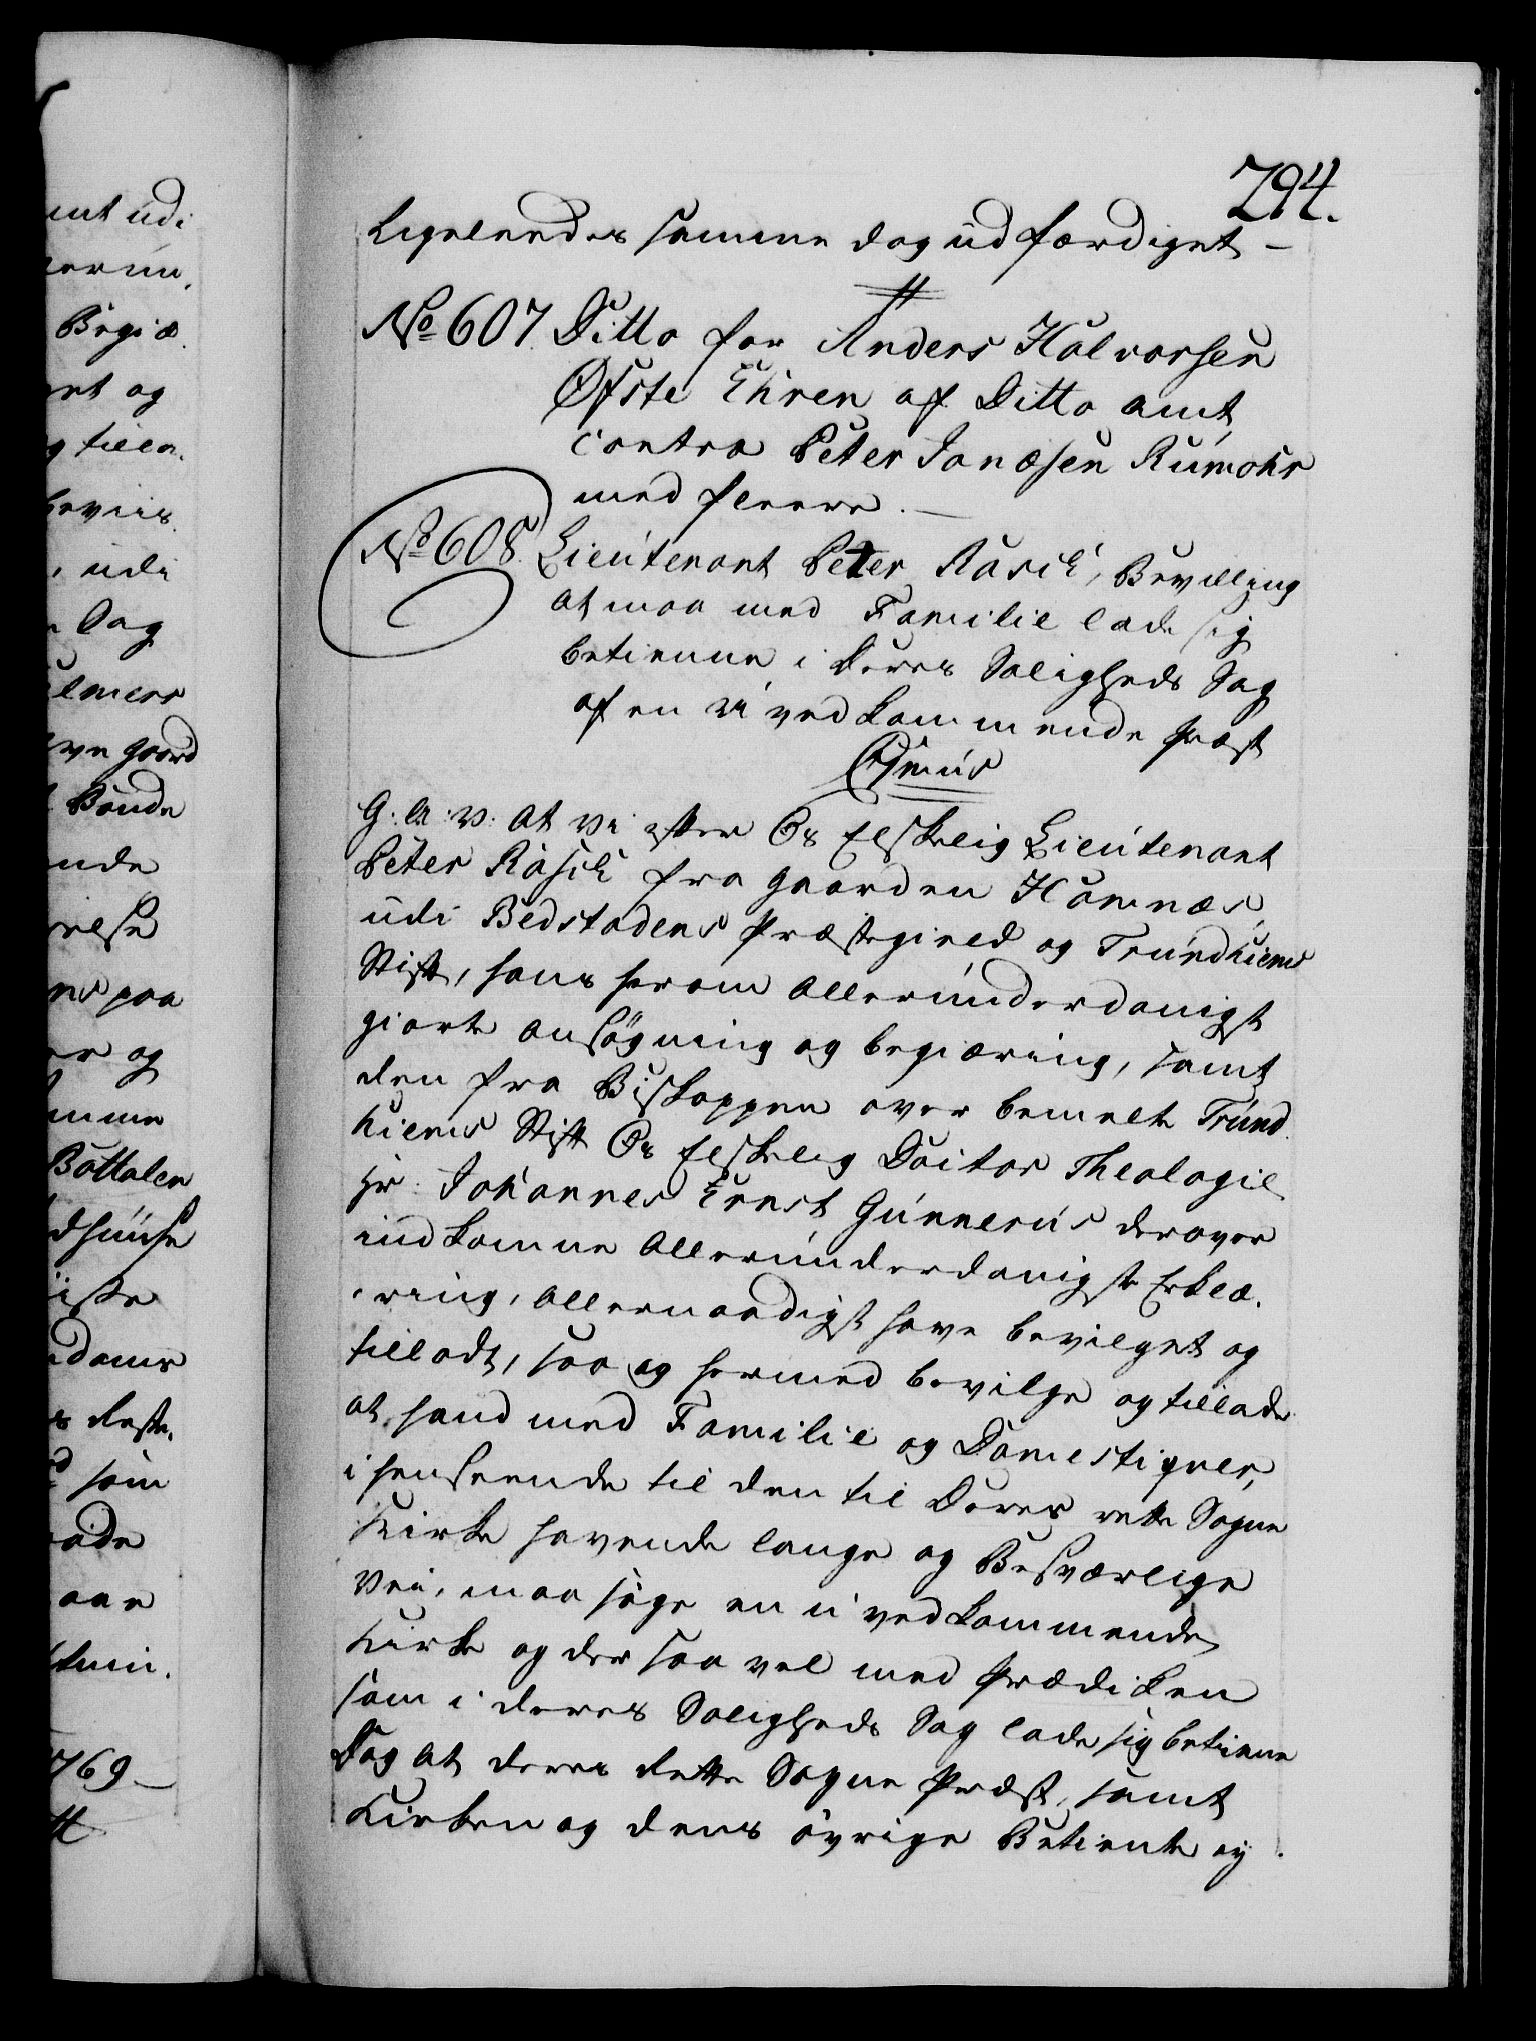 294.
Ligeleedes samme dag udfærdiget –
No 607 Ditto for Anders Halvorsen
Øfste Ehren af Ditto amt
contra Peter Jonæsen Rumohr
med fleere. –
No 608. Lieutenant Peter Rasch, Bevilling
at maa med Familie lade sig
betienne i Deres Saligheds Sag
af en uvedkommende Præst
G: A: V: At Vi efter Os Elskelig Lieutenant
Peter Rasch fra gaarden Hamnæs
udi Bedstadens Præstegield og Trundhiems
Stift, hans herom allerunderdanigst
giorte ansøgning og begiæring, samt
den fra Biskoppen over bemelte Trund
hiems Stift Os Elskelig Doctor Theologie
Hr: Johannes Ernst Gunnerus derover
indkomne allerunderdanigste Erklæ.
ring, allernaadigst have bevilget og
tilladt, saa og hermed bevilge og tillade
at hand med Familie og Domestiquer,
i henseende til den til Deres rette Sogne
Kirke havende lange og Besværlige
Vei, maa søge en uvedkommende
Kirke og der saa vel med Prædiken
som i deres Saligheds Sag lade sig betiene
Dog at deres rette Sogne Præst, samt
Kirken og dens øvrige Betiente ey.
amt udi
Begiæ
et og
g tilla.
beviis.
, udi
Dag
gaard
Bonde
ende
paa
og
Bottolen
som
769 –